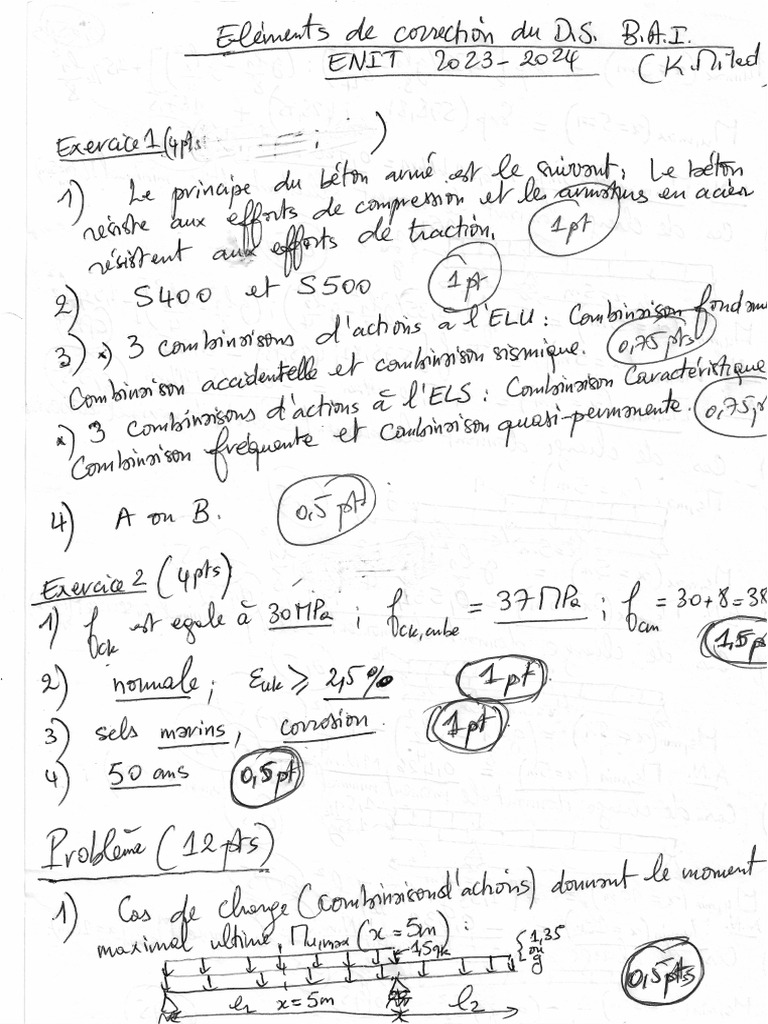 Eléments de correction du D.S. B.A.I.
ENIT 2023-2024 (K.Miled)
Exercice 1 (4pts : )
1) Le principe du béton armé est le suivant : Le béton
résiste aux efforts de compression et les armatures en acier
résistent aux efforts de traction. 1pt
2) S400 et S500 1pt
3) *) 3 combinaisons d'actions à l'ELU : Combinaison fondam
Combinaison accidentelle et combinaison sismique. 0,75pts
*) 3 combinaisons d'actions à l'ELS : Combinaison Caractéristique
Combinaison fréquente et combinaison quasi-permanente. 0,75p
4) A ou B. 0,5pt
Exercice 2 (4pts)
1) fck est egale à 30MPa ; fck,cube = 37MPa ; fcm = 30+8=38
1,5p
2) normale ; εuk ≥ 2,5% 1pt
3) sels marins, corrosion. 1pt
4) 50 ans 0,5pt
Problème (12pts)
1) Cas de charge (combinaison d'actions) donnant le moment
maximal ultime, Mu,max (x=5m) :
1,5qk { 1,35 ou g
0,5pts
l1 x=5m l2